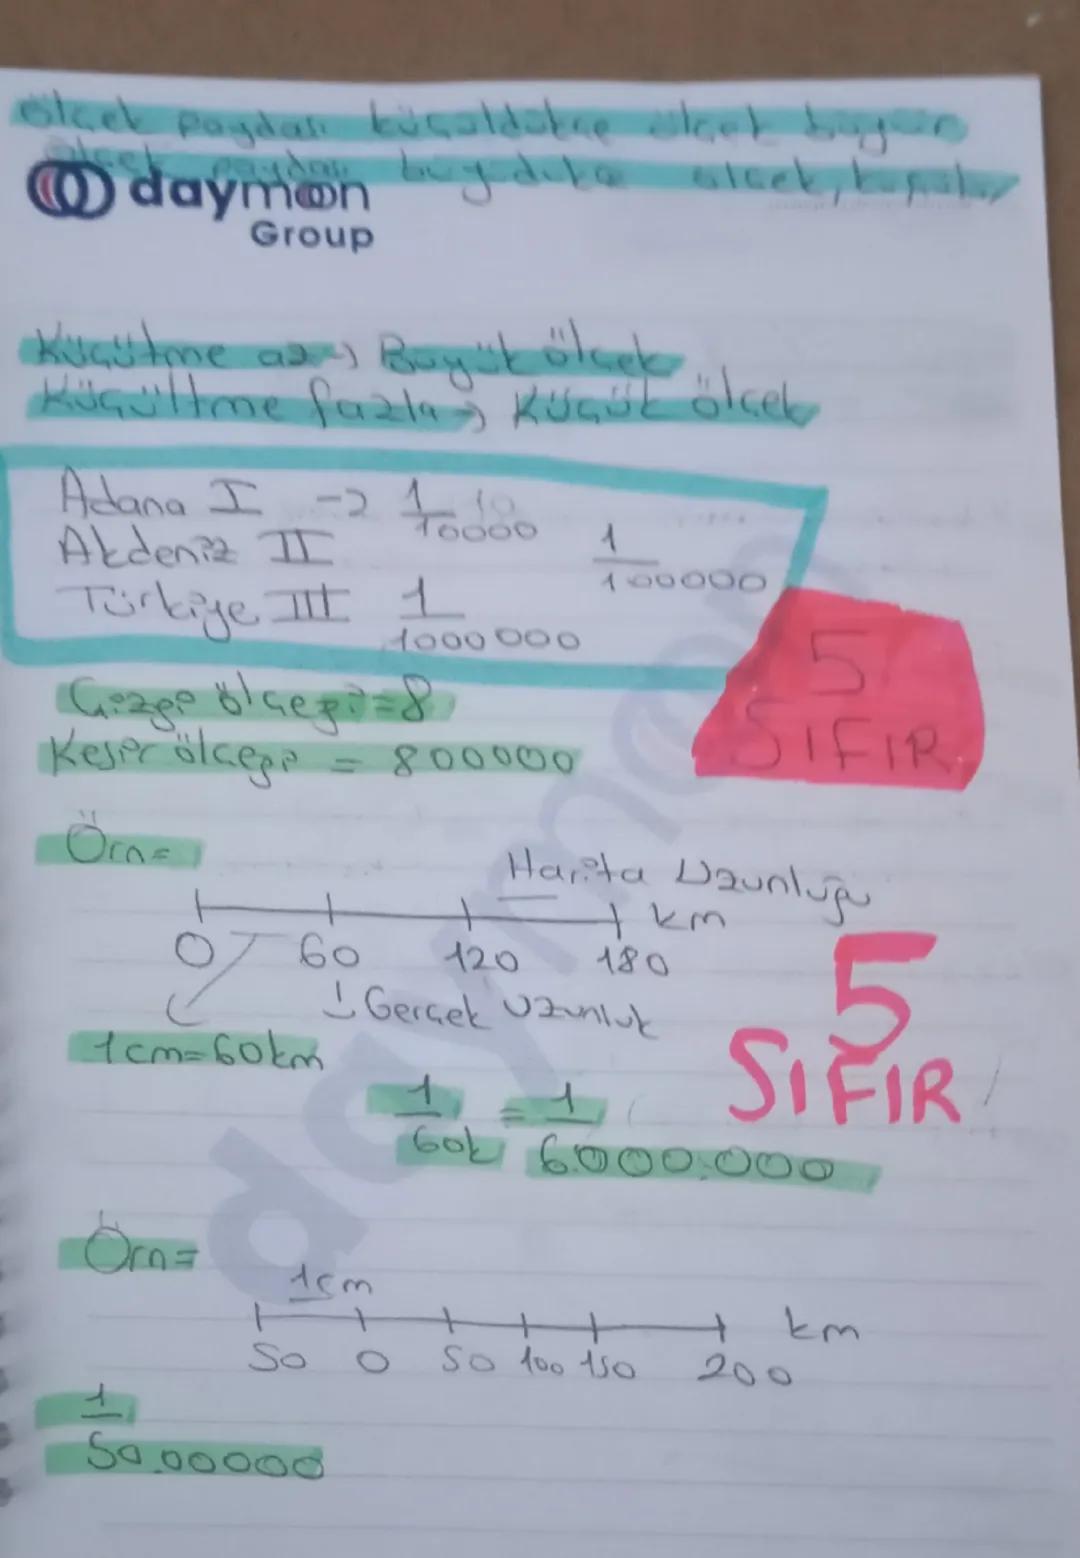 ölçek paydası küçüldükçe ölçek büyür
ölçek paydası büyüdükçe ölçek küçülür
daymon
Group
Küçütme az→ Büyük ölçek
Küçültme fazla→ Küçük ölçek
Adana I → 1/10000
Akdeniz II 1/100000
Türkiye III 1/1000000
5
SIFIR
Çizgi ölçeği=8
Kesir ölçeği = 800000
Örn=
Harita Uzunluğu
km
0 60 120 180
Gerçek Uzunluk
1cm=60km
5
SIFIR
1/60k = 1/6.000.000
daymon
Örn=
1cm
km
50 0 50 100 150 200
1/50.00000